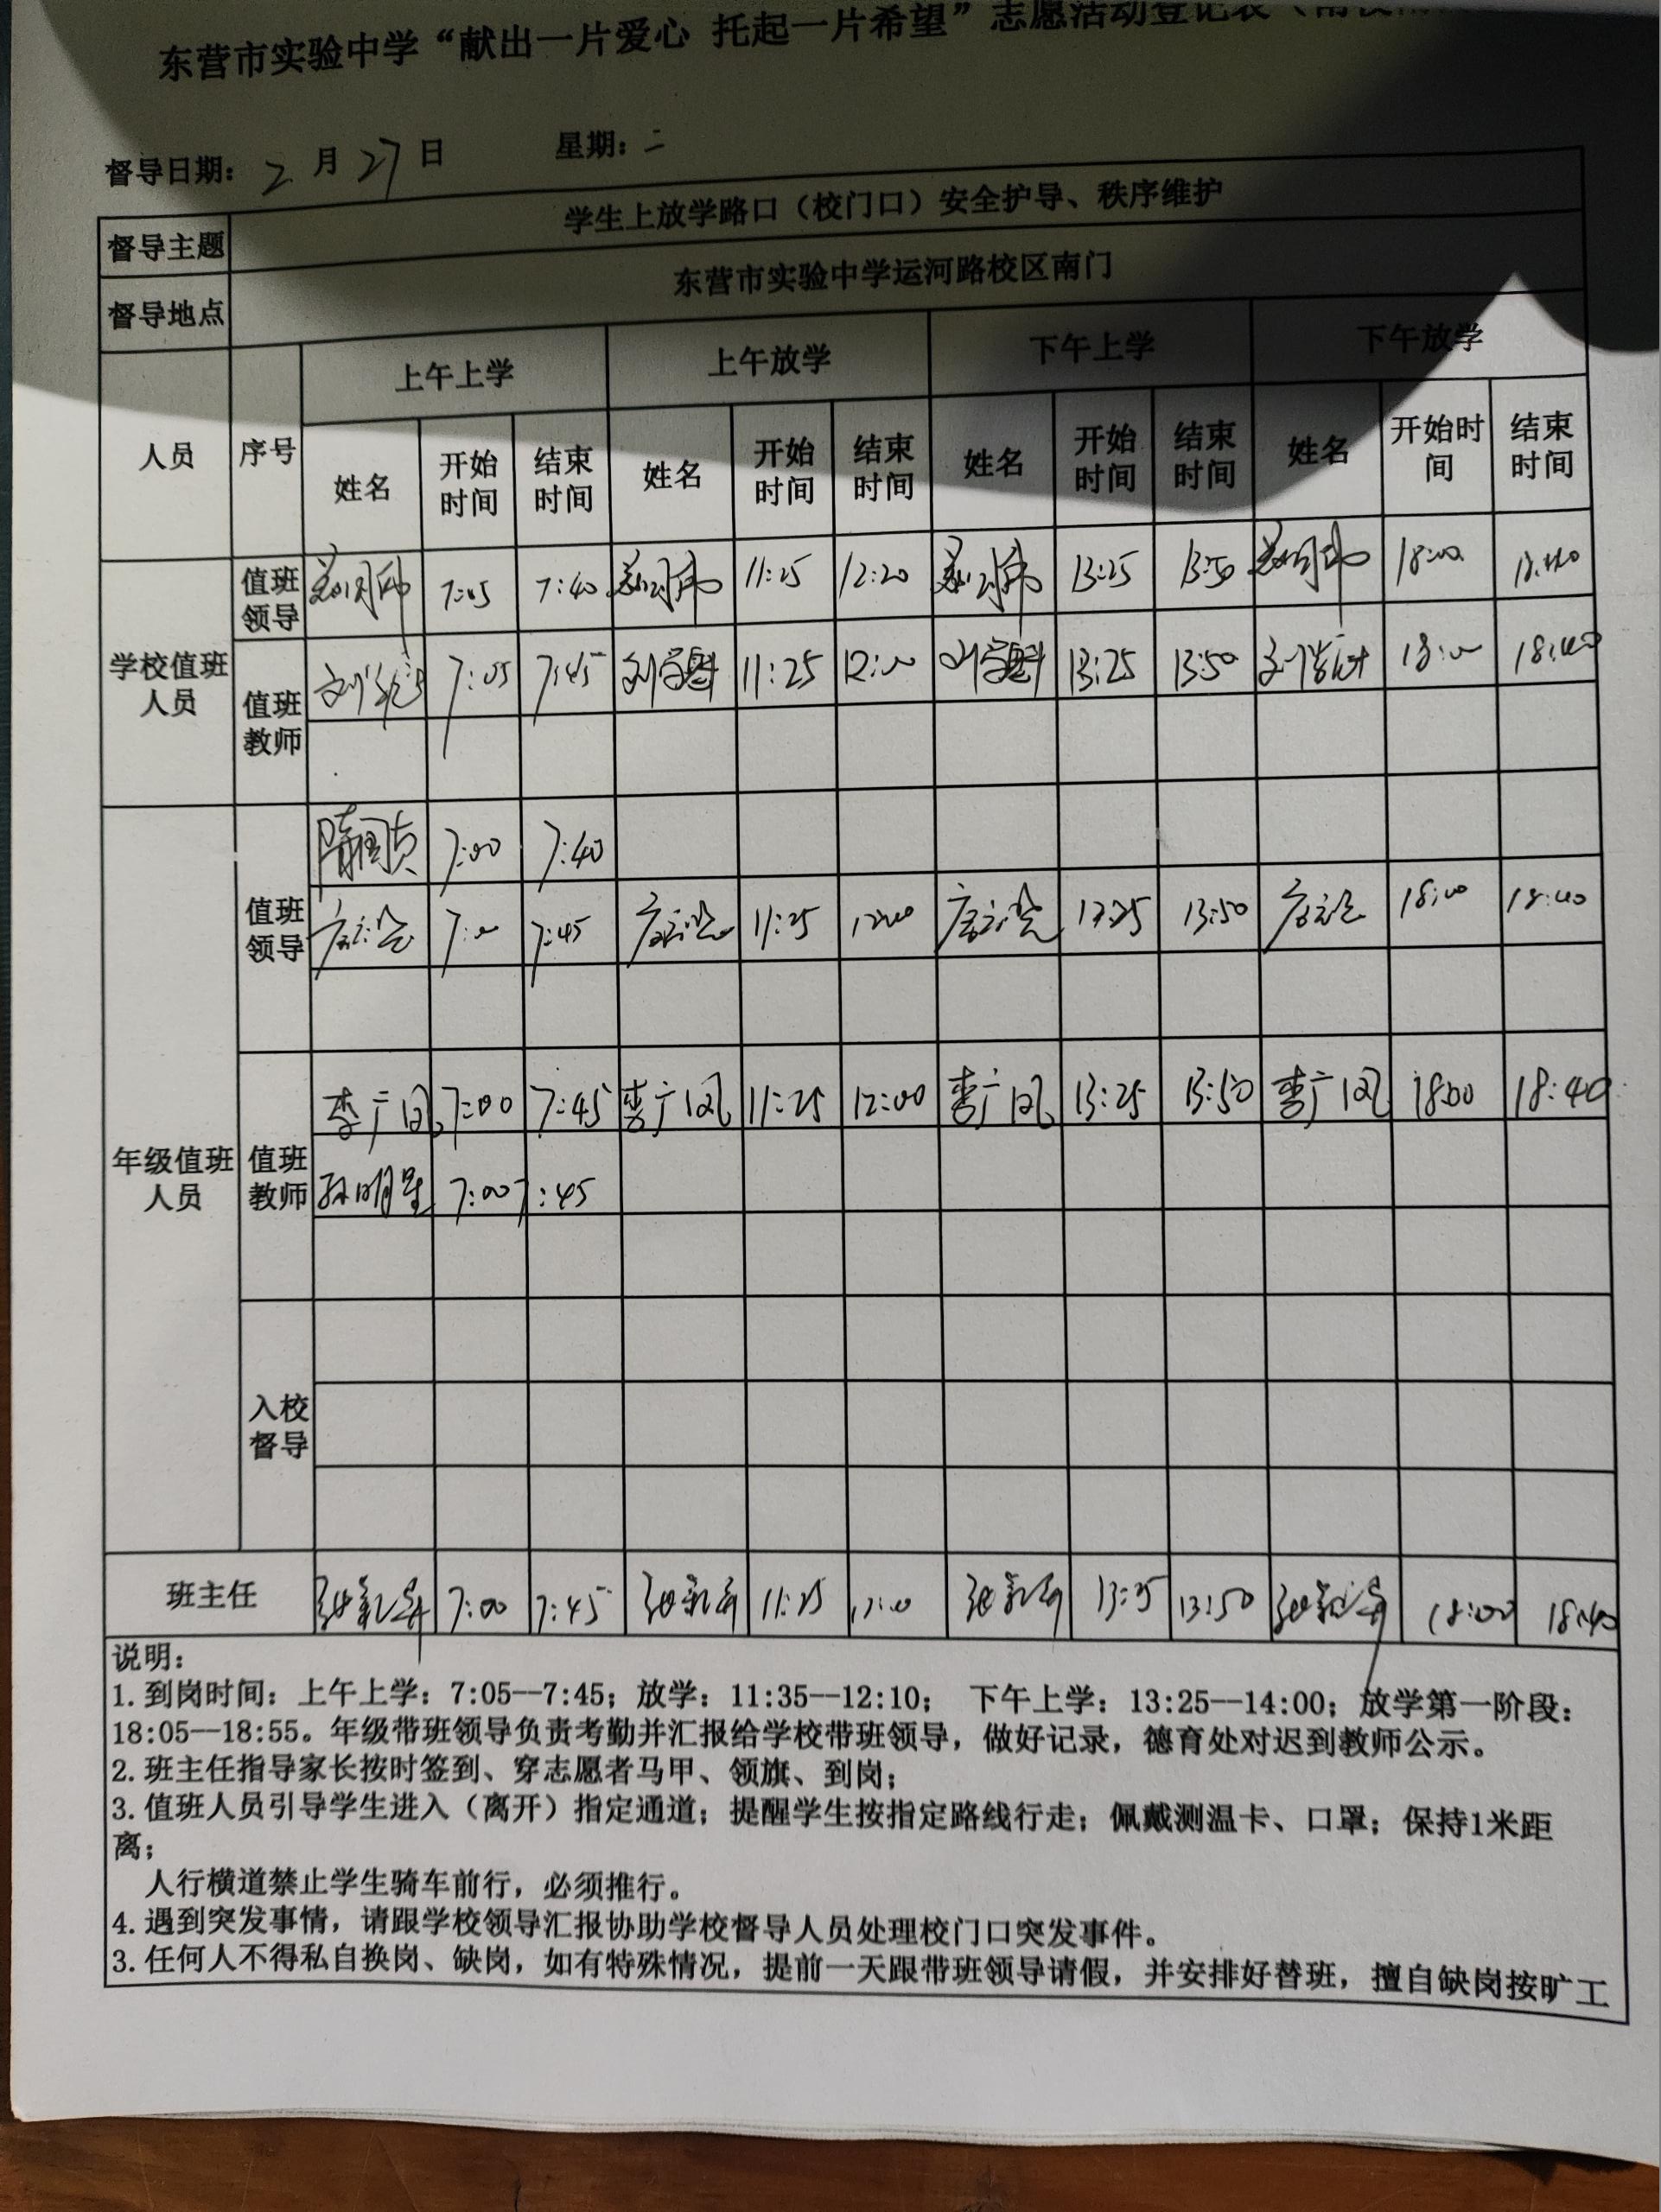 东营市实验中学“献出一片爱心 托起一片希望”志愿活动登记表
督导日期： 2 月 27 日 星期：二
督导主题 学生上放学路口（校门口）安全护导、秩序维护
督导地点 东营市实验中学运河路校区南门
人员 序号 上午上学 上午放学 下午上学 下午放学
姓名 开始时间 结束时间 姓名 开始时间 结束时间 姓名 开始时间 结束时间 姓名 开始时间 结束时间
学校值班人员
值班领导 7:05 7:40 11:25 12:20 13:25 13:50 18:00 18:40
值班教师 7:05 7:45 刘学魁 11:25 12:00 刘学魁 13:25 13:50 18:00 18:40
年级值班人员
值班领导 7:00 7:40
7:00 7:45 11:25 12:00 13:25 13:50 18:00 18:40
值班教师 李广凤 7:00 7:45 李广凤 11:25 12:00 李广凤 13:25 13:50 李广凤 18:00 18:40
孙明星 7:00 7:45
入校督导
班主任 7:00 7:45 11:25 12:00 13:25 13:50 18:00 18:40
说明：
1. 到岗时间：上午上学：7:05--7:45；放学：11:35--12:10； 下午上学：13:25--14:00；放学第一阶段：
18:05--18:55。年级带班领导负责考勤并汇报给学校带班领导，做好记录，德育处对迟到教师公示。
2. 班主任指导家长按时签到、穿志愿者马甲、领旗、到岗；
3. 值班人员引导学生进入（离开）指定通道；提醒学生按指定路线行走；佩戴测温卡、口罩；保持1米距
离；
人行横道禁止学生骑车前行，必须推行。
4. 遇到突发事情，请跟学校领导汇报协助学校督导人员处理校门口突发事件。
3. 任何人不得私自换岗、缺岗，如有特殊情况，提前一天跟带班领导请假，并安排好替班，擅自缺岗按旷工